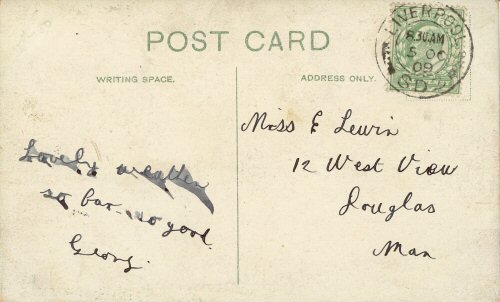 POST CARD
WRITING SPACE.
ADDRESS ONLY.
LIVERPOOL
8.30 AM
5 OC
09
S.D
Lovely weather
so far so good.
Georg.
Miss E Lewin
12 West View
Douglas
Man